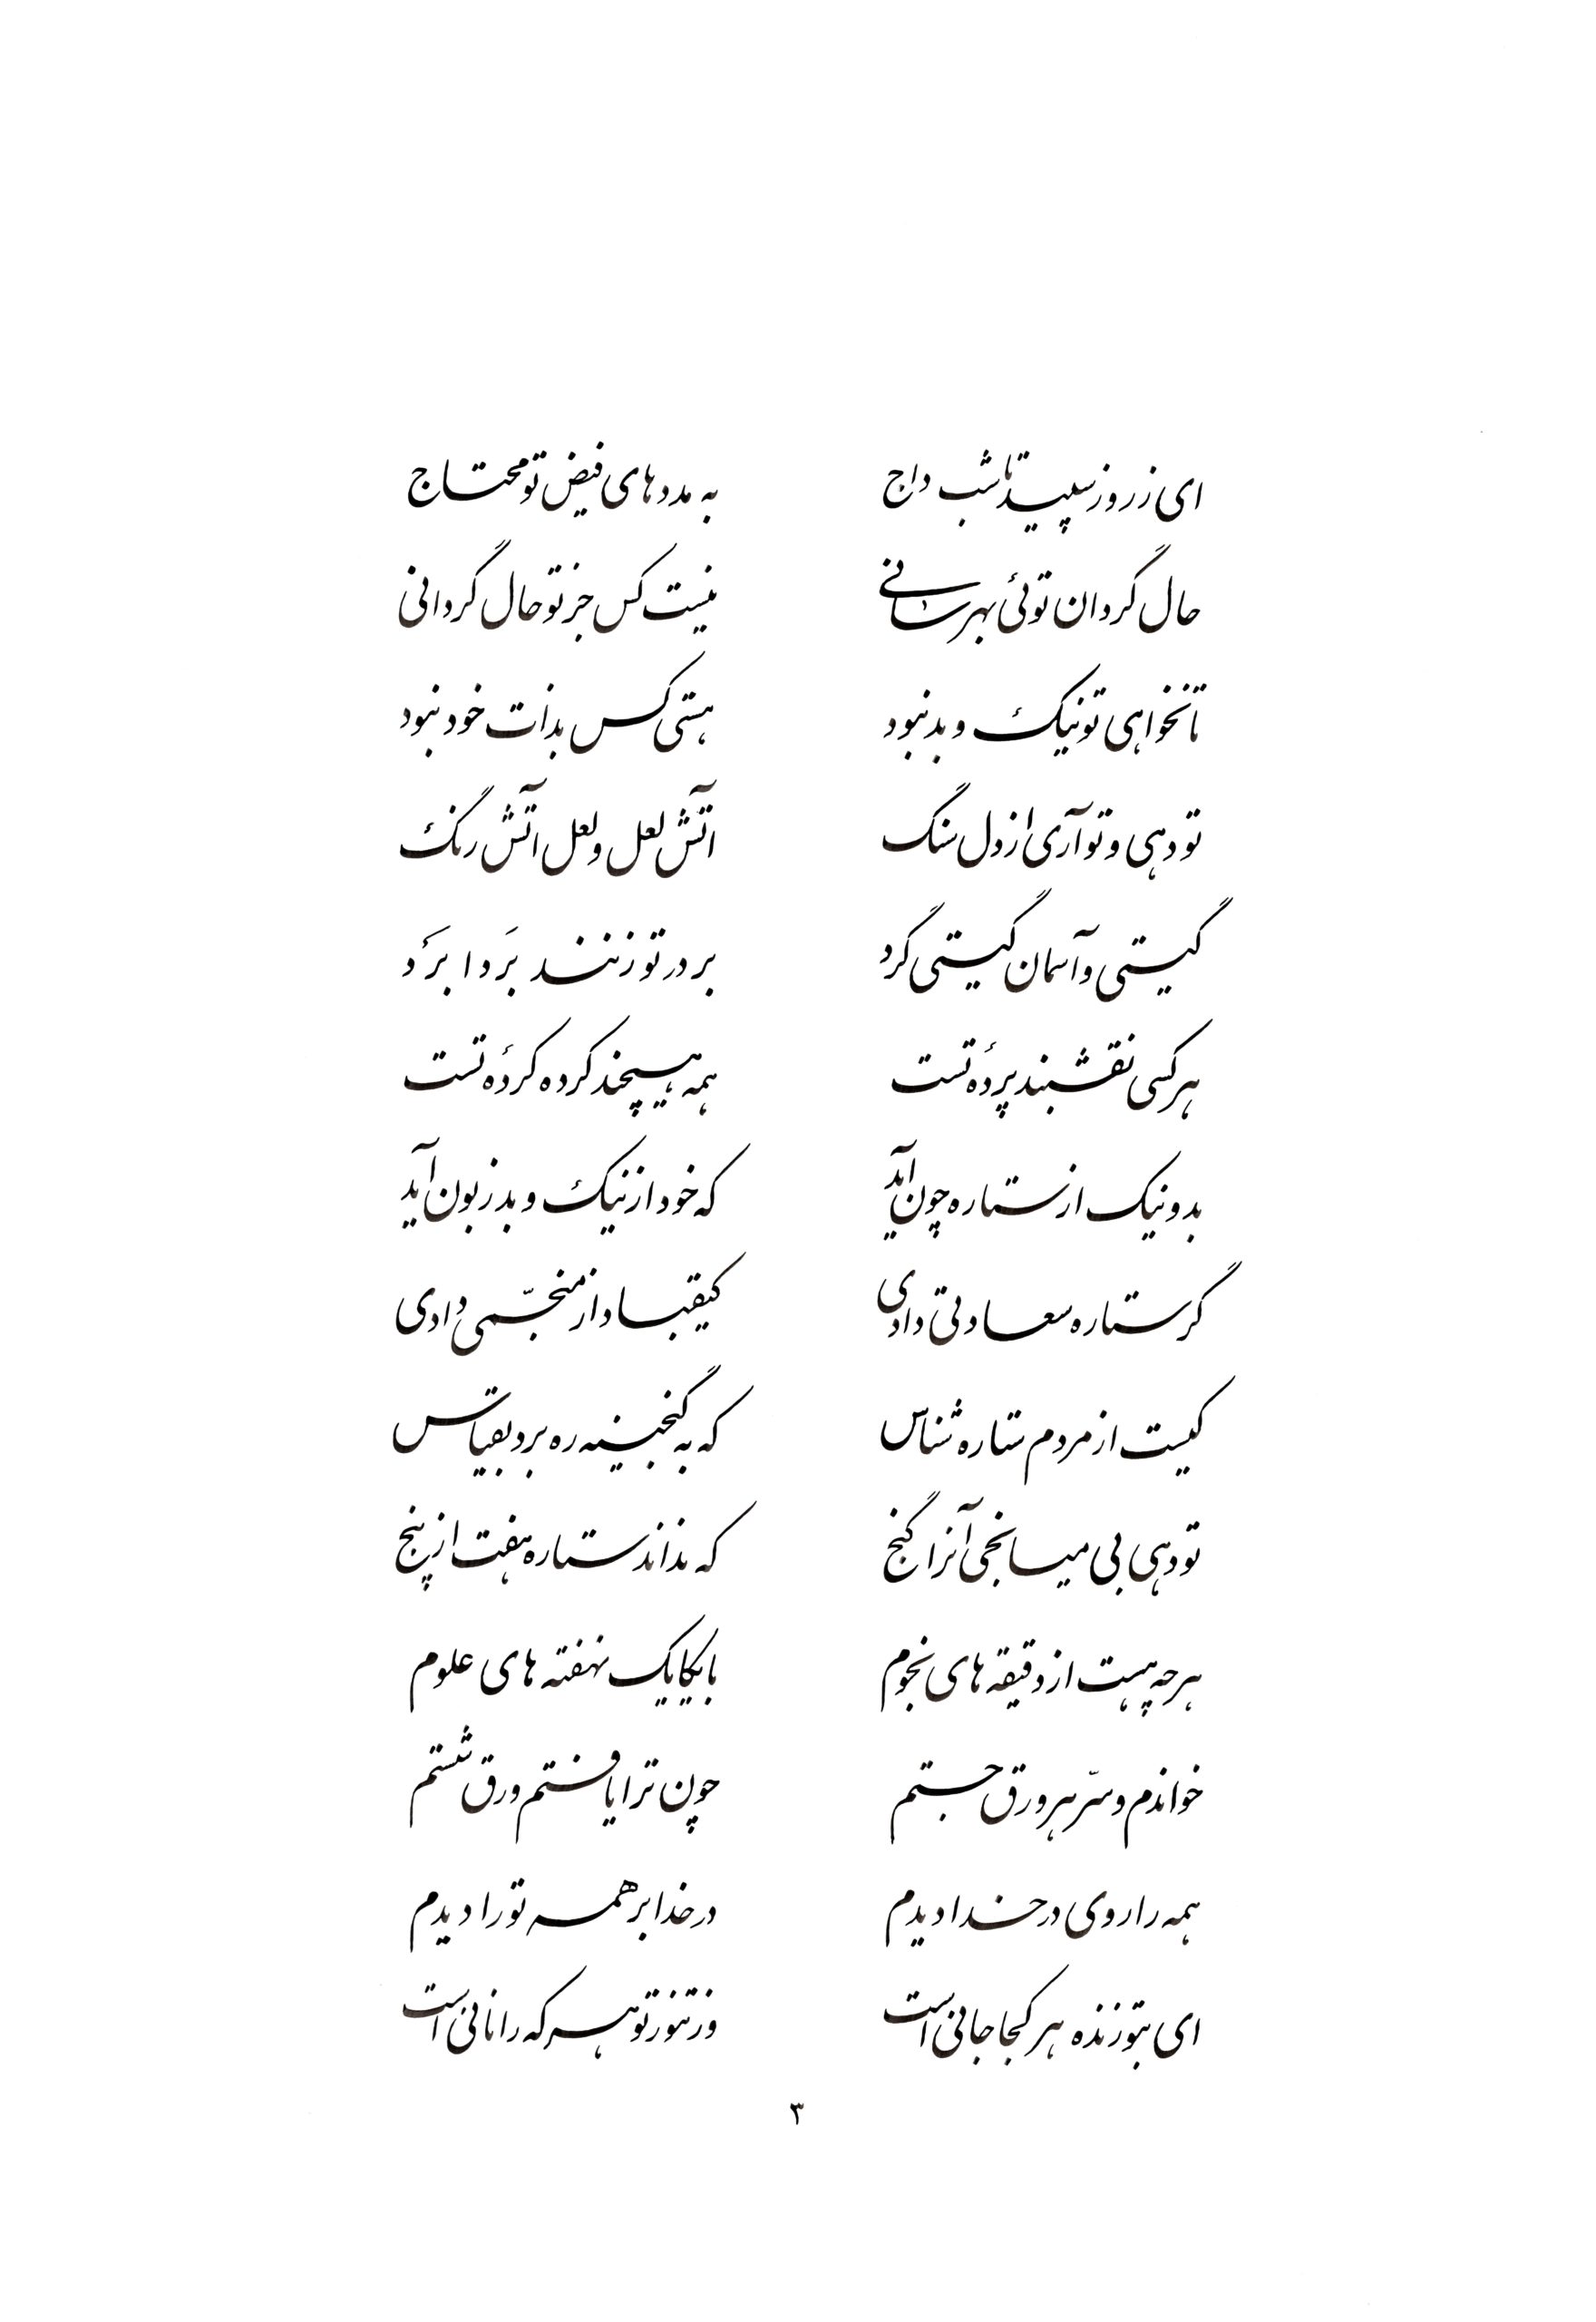 ای ز روز سپید تا شب داج به مددهای فیض تو محتاج
حال گردان توئی بهر سانی نیست کس جز تو حال گردانی
تا نخواهی تو نیک و بد نبود هستی کس بذات خود نبود
تو دهی و تو آری از دل سنگ آتش لعل و لعل آتش رنگ
گیتی و آسمان گیتی گرد بر در تو زنند بَردا بَرد
هر کسی نقشبند پردهٔ تست همه هیچند کرده کردهٔ تست
بد و نیک از ستاره چون آید که خود از نیک و بد زبون آید
گر ستاره سعادتی دادی کیقباد از منجّمی زادی
کیست از مردم ستاره شناس که به گنجینه ره برد بقیاس
تو دهی بی میانجی آنرا گنج که نداند ستاره هفت از پنج
هر چه هست از دقیقه های نجوم با یکایک نهفته های علوم
خواندم و سرّ هر ورق جستم چون ترا یافتم ورق شستم
همه را روی در خدا دیدم در خدا بر همه تو را دیدم
ای بتو زنده هر کجا جانی است وز تنور تو هر که را نانی است
۳